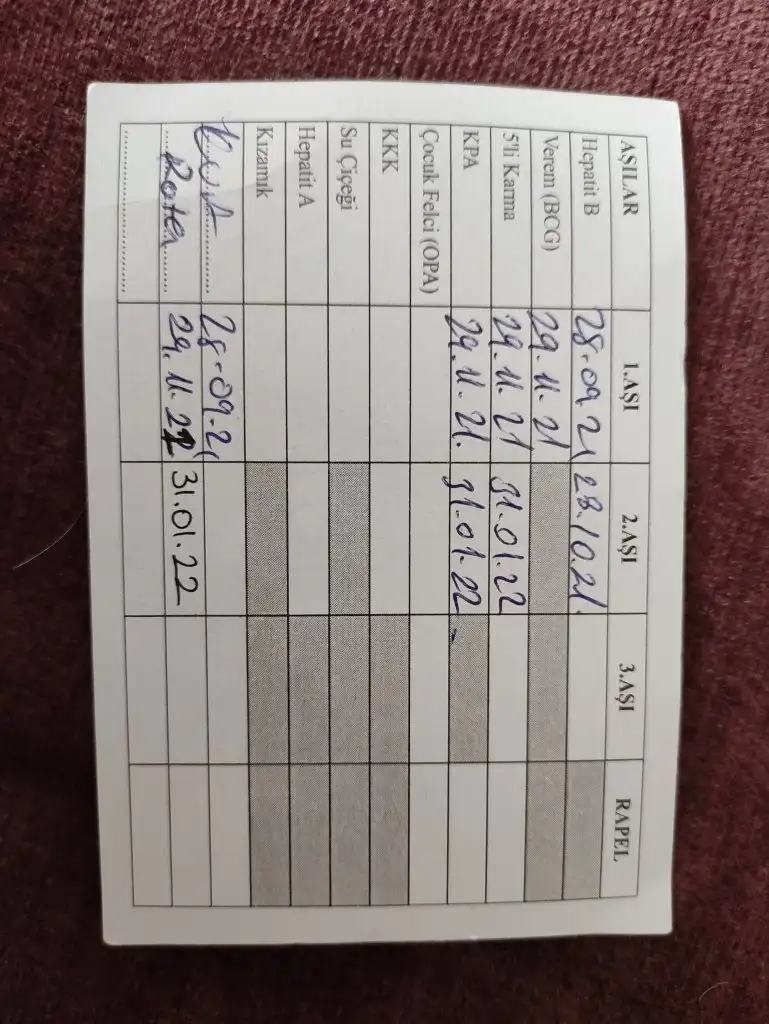 AŞILAR 1.AŞI 2.AŞI 3.AŞI RAPEL
Hepatit B 28.09.21 28.10.21.
Verem (BCG) 29.11.21
5'li Karma 29.11.21 31.01.22
KPA 29.11.21. 31.01.22
Çocuk Felci (OPA)
KKK
Su Çiçeği
Hepatit A
Kızamık
28.09.21
Rota 29.11.21 31.01.22